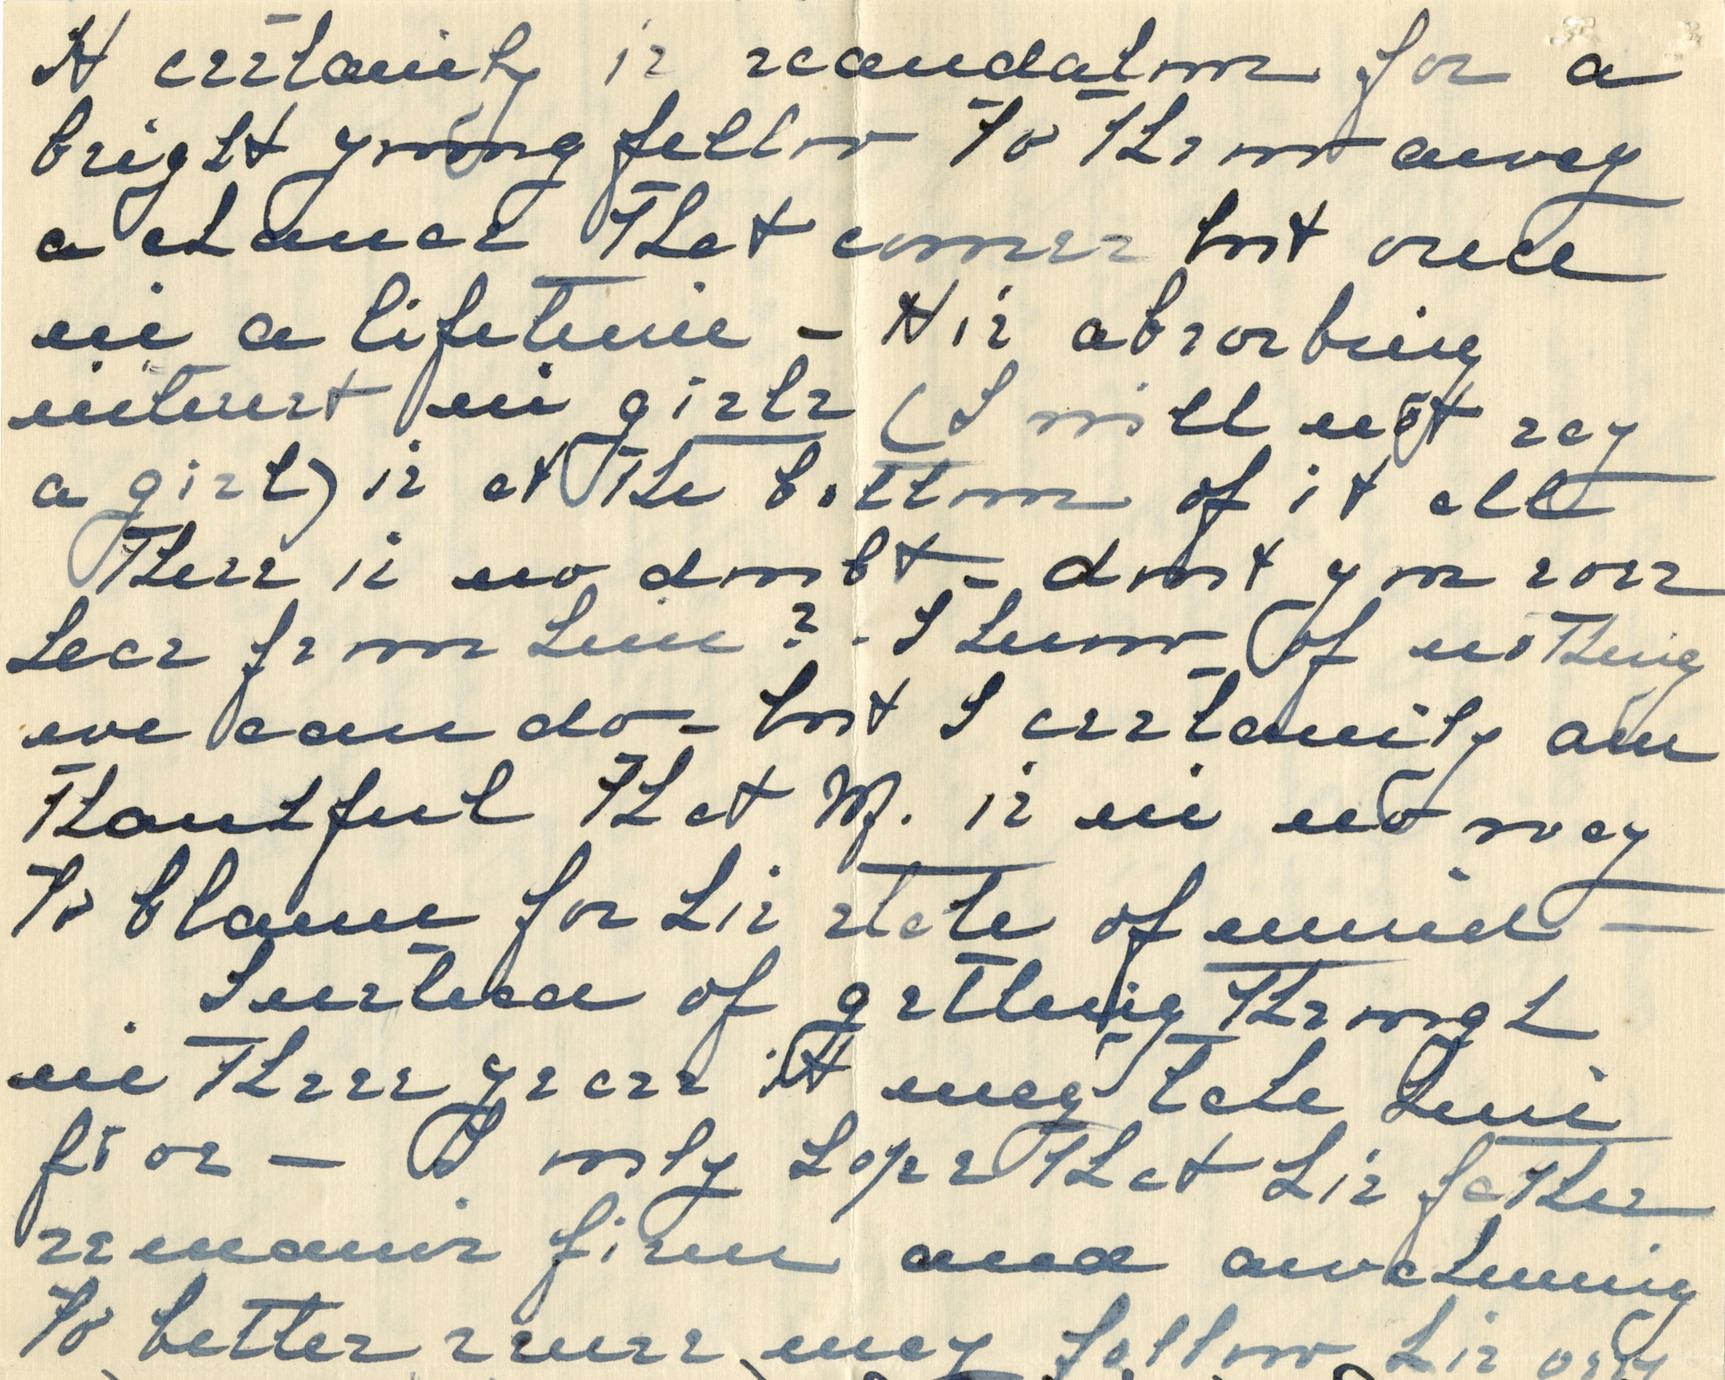 It certainly is scandalous for a
bright young fellow to throw away
a chance that comes but once
in a lifetime - His absorbing
interest in girls (I will not say
a girl) is at the bottom of it all
There is no doubt - dont you ever
hear from him? - I know of nothing
we can do - but I certainly am
thankful that M. is in no way
to blame for his state of mind -
Instead of getting through
in three years it may take him
five - I only hope that his father
remains firm and awakening
to better sense may follow his